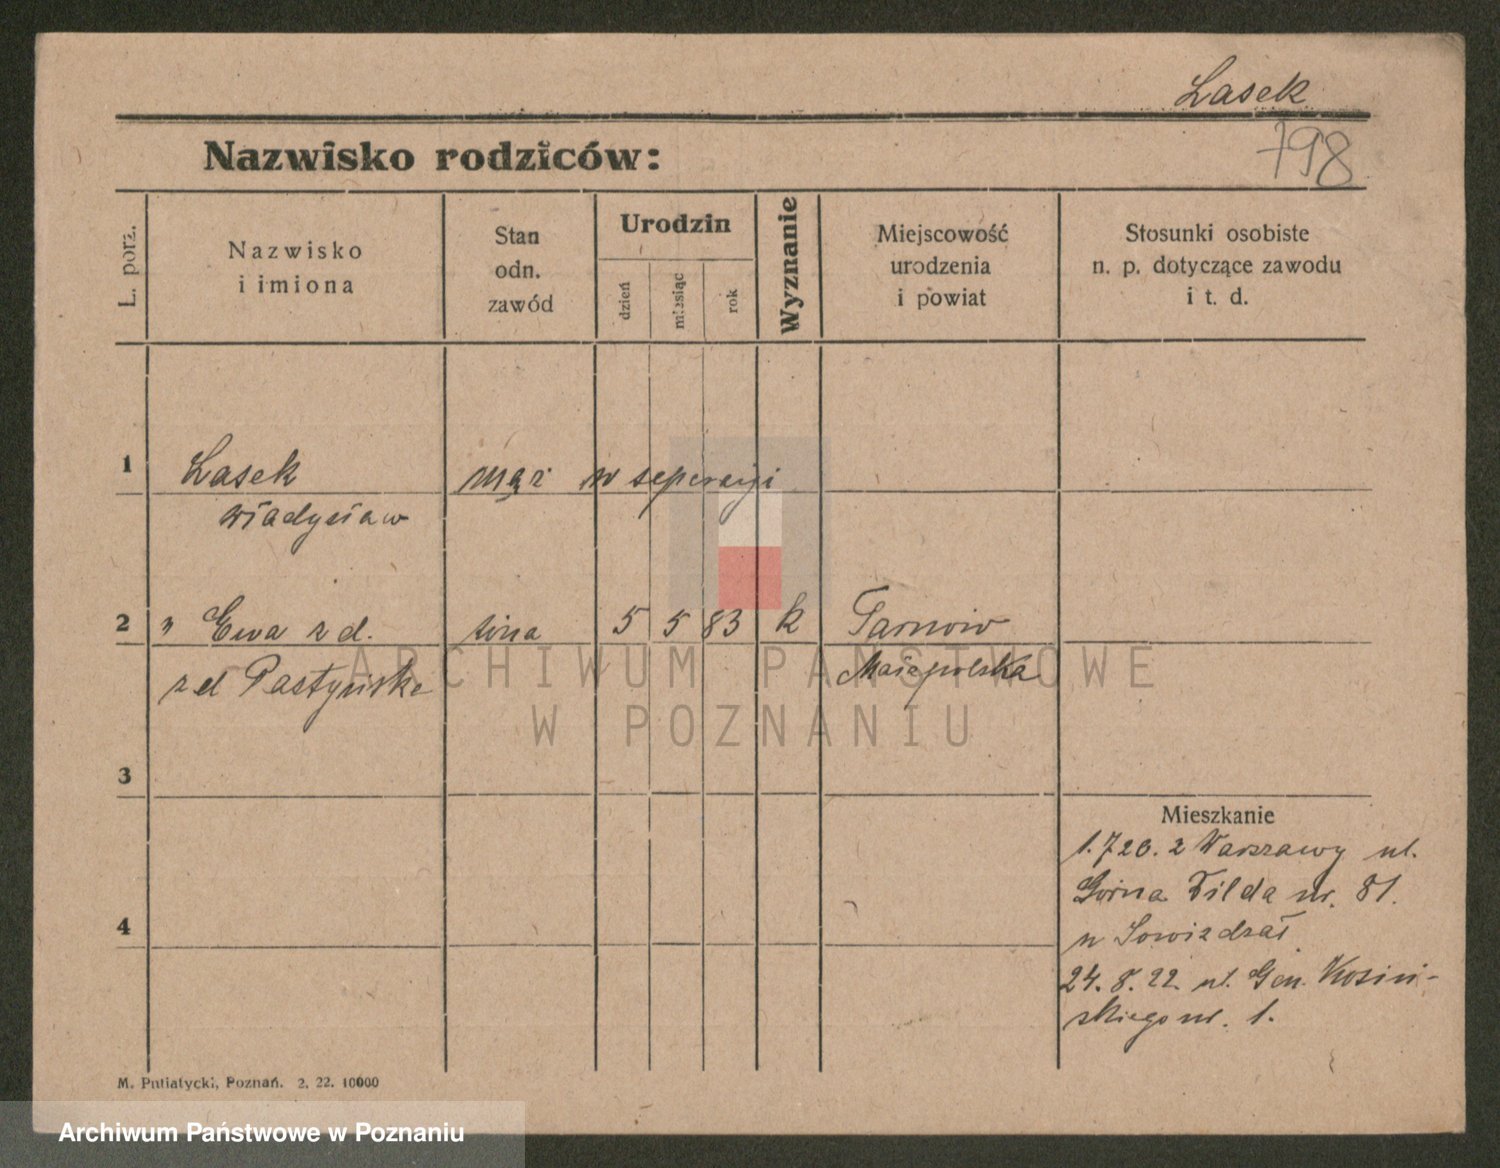 Lasek
798
Nazwisko rodziców:
L. porz.
Nazwisko
i imiona
Stan
odn.
zawód
Urodzin
dzień
miesiąc
rok
Wyznanie
Miejscowość
urodzenia
i powiat
Stosunki osobiste
n. p. dotyczące zawodu
i t. d.
1 Lasek mąż w seperacyi
Władysław
2 " Ewa z d. żona 5 5 83 k Tarnów
z d Pastyńska Małopolska
ARCHIWUM PAŃSTWOWE
W POZNANIU
3
Mieszkanie
1.7 20. z Warszawy ul.
Górna Wilda nr. 81.
4
u Sowizdzał
24. 8. 22 ul. Gen. Kosiń-
skiego nr. 1.
M. Putiatycki, Poznań. 2. 22. 10000
Archiwum Państwowe w Poznaniu